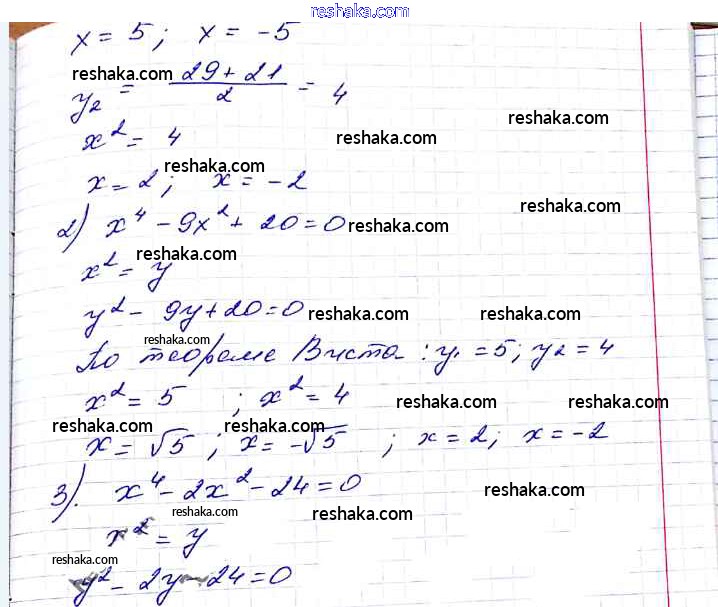 reshaka.com
x = 5; x = -5
reshaka.com
y₂ = (29 + 21)/2 = 4
reshaka.com
x² = 4 reshaka.com
reshaka.com
x = 2; x = -2
reshaka.com
2) x⁴ - 9x² + 20 = 0 reshaka.com
x² = y reshaka.com
y² - 9y + 20 = 0 reshaka.com reshaka.com
reshaka.com
По теореме Виета: y₁ = 5; y₂ = 4
x² = 5 ; x² = 4 reshaka.com reshaka.com
reshaka.com reshaka.com
x = √5 ; x = -√5 ; x = 2; x = -2
reshaka.com
3). x⁴ - 2x² - 24 = 0 reshaka.com
reshaka.com
x² = y
reshaka.com
y² - 2y - 24 = 0
reshaka.com